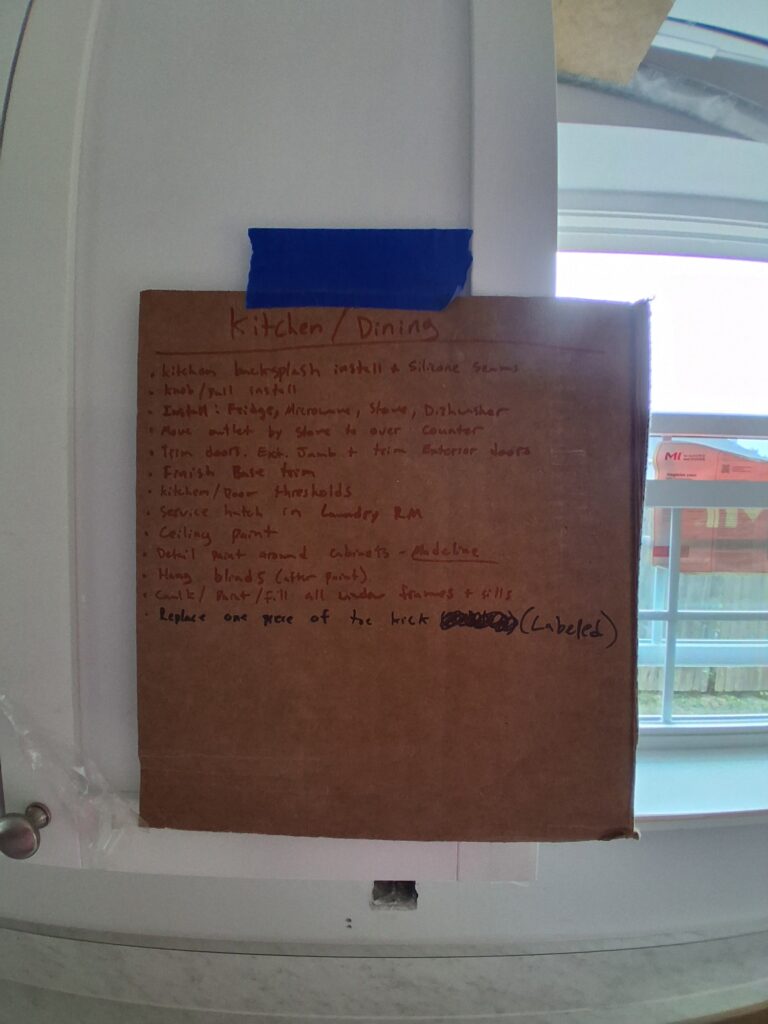 Kitchen/Dining
• kitchen backsplash install & Silicone Seams
• knob/pull install
• Install: Fridge, Microwave, Stove, Dishwasher
• Move outlet by stove to over counter
• Trim doors. Ext. Jamb + trim Exterior doors
• Finish Base trim
• kitchen/Door thresholds
• Service hatch in Laundry RM
• Ceiling paint
• Detail paint around cabinets - Madeline
• Hang blinds (after paint)
• Caulk/Paint/fill all window frames + sills
• Replace one piece of toe kick (Labeled)
MI